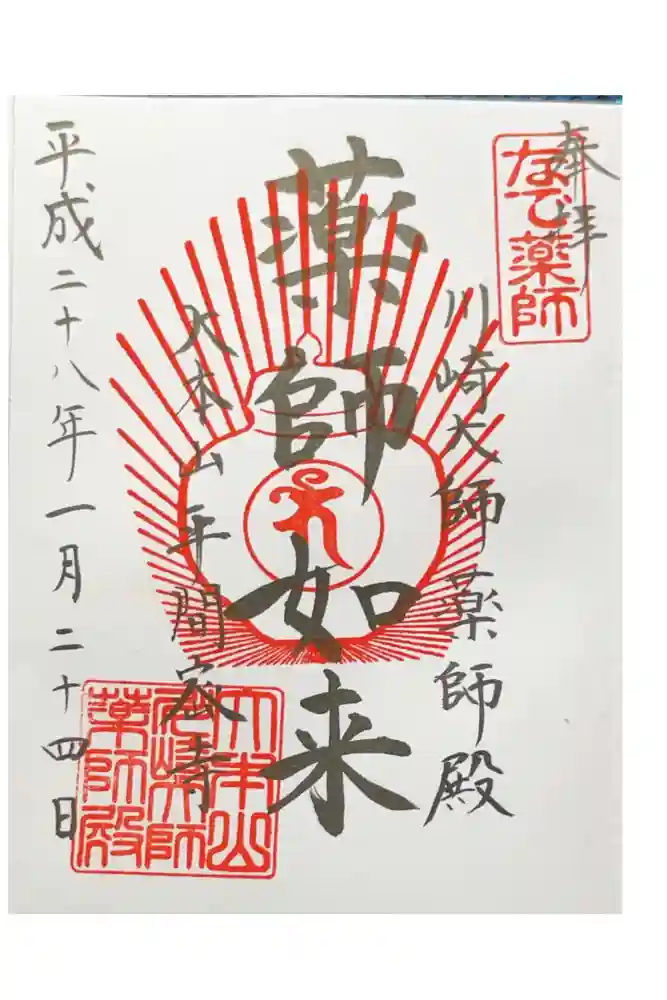 奉拝
なで薬師
川崎大師薬師殿
薬師如来
大本山平間寺
平成二十八年一月二十四日
大本山
川崎大師
薬師殿